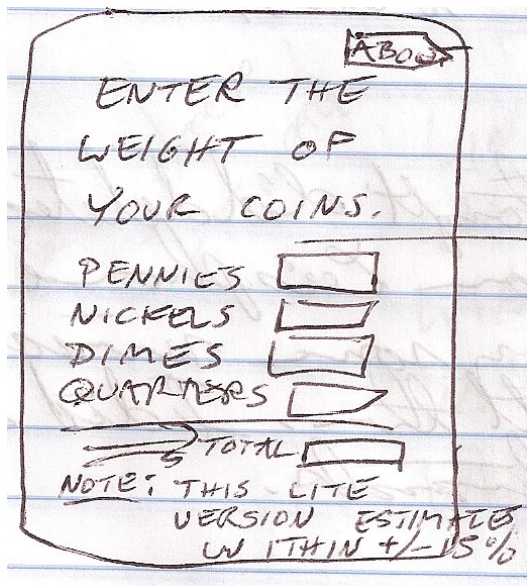 ABOUT
ENTER THE
WEIGHT OF
YOUR COINS.
PENNIES
NICKELS
DIMES
QUARTERS
TOTAL
NOTE: THIS LITE
VERSION ESTIMATES
WITHIN +/- 15%